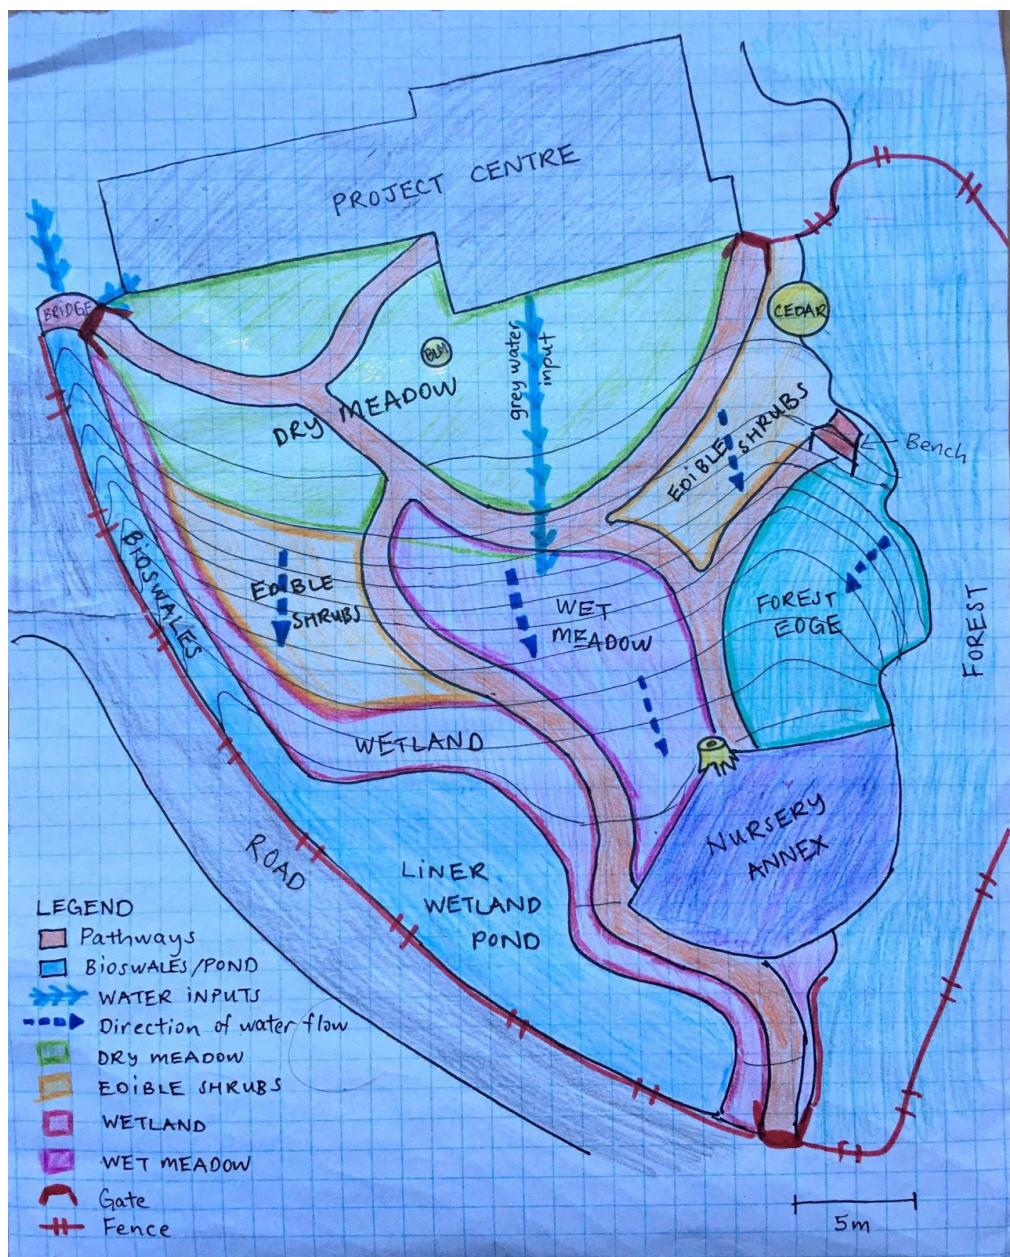 PROJECT CENTRE
BRIDGE
CEDAR
BLM
grey water
input
DRY MEADOW
EDIBLE
SHRUBS
Bench
BIOSWALES
EDIBLE
SHRUBS
WET
MEADOW
FOREST
EDGE
FOREST
WETLAND
NURSERY
ANNEX
ROAD
LINER
WETLAND
POND
LEGEND
Pathways
BIOSWALES/POND
WATER INPUTS
Direction of water flow
DRY MEADOW
EDIBLE SHRUBS
WETLAND
WET MEADOW
Gate
Fence
5m